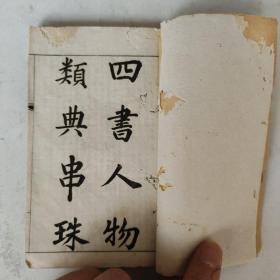 四書人物
類典串珠